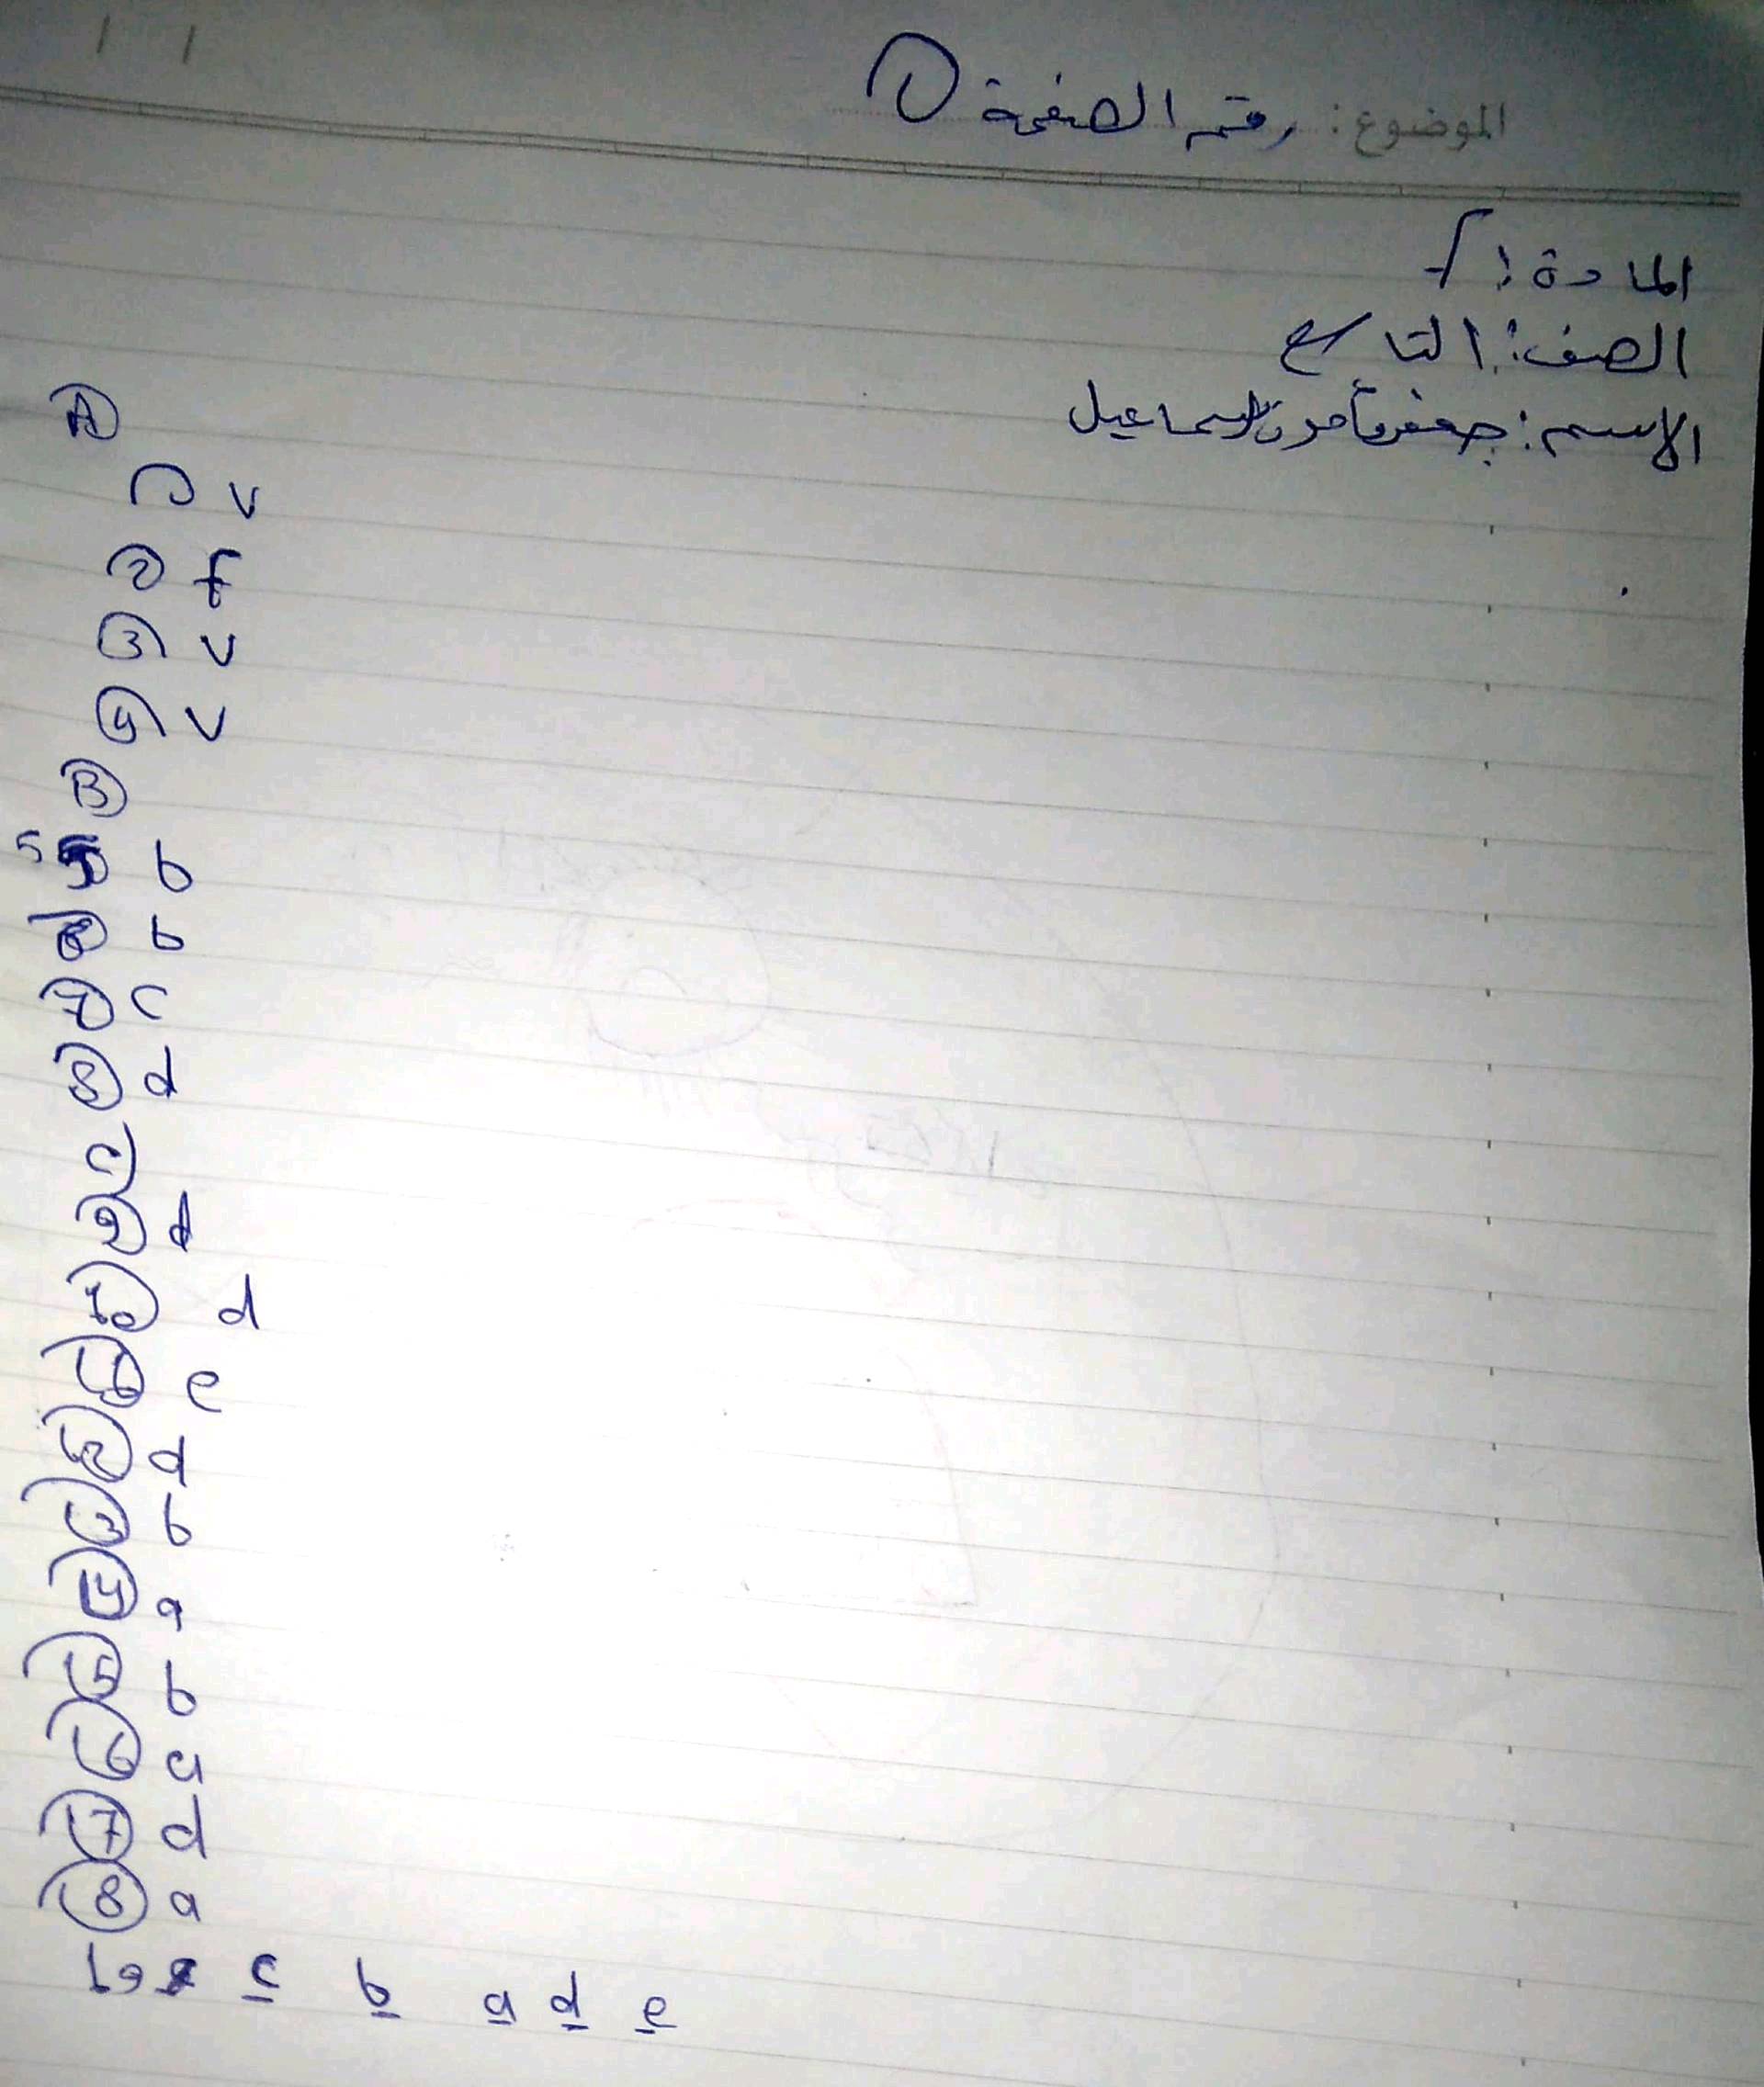 الموضوع: رقم الصفحة 1
المادة:
الصف: التاسع
الاسم: جعفر مأمون اسماعيل
A
1 v
2 f
3 v
4 v
B
5 b
b
7 c
8 d
C
9 d
10 d
11 c
12 d
13 b
14 a
15 b
16 c
17 d
18 a
19 c b a d e